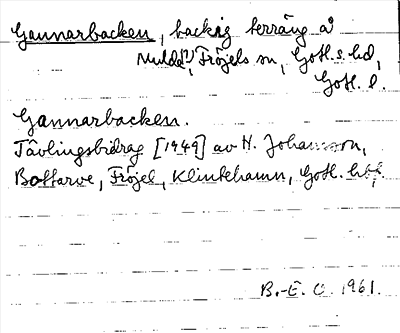 Gannarbacken, backig terräng å
Mulde, Fröjels sn, Gotl. s. hd,
Gotl. l.
Gannarbacken.
Tävlingsbidrag [1949] av H. Johansson,
Bottarve, Fröjel, Klintehamn, Gotl.
B.-E. O 1961.